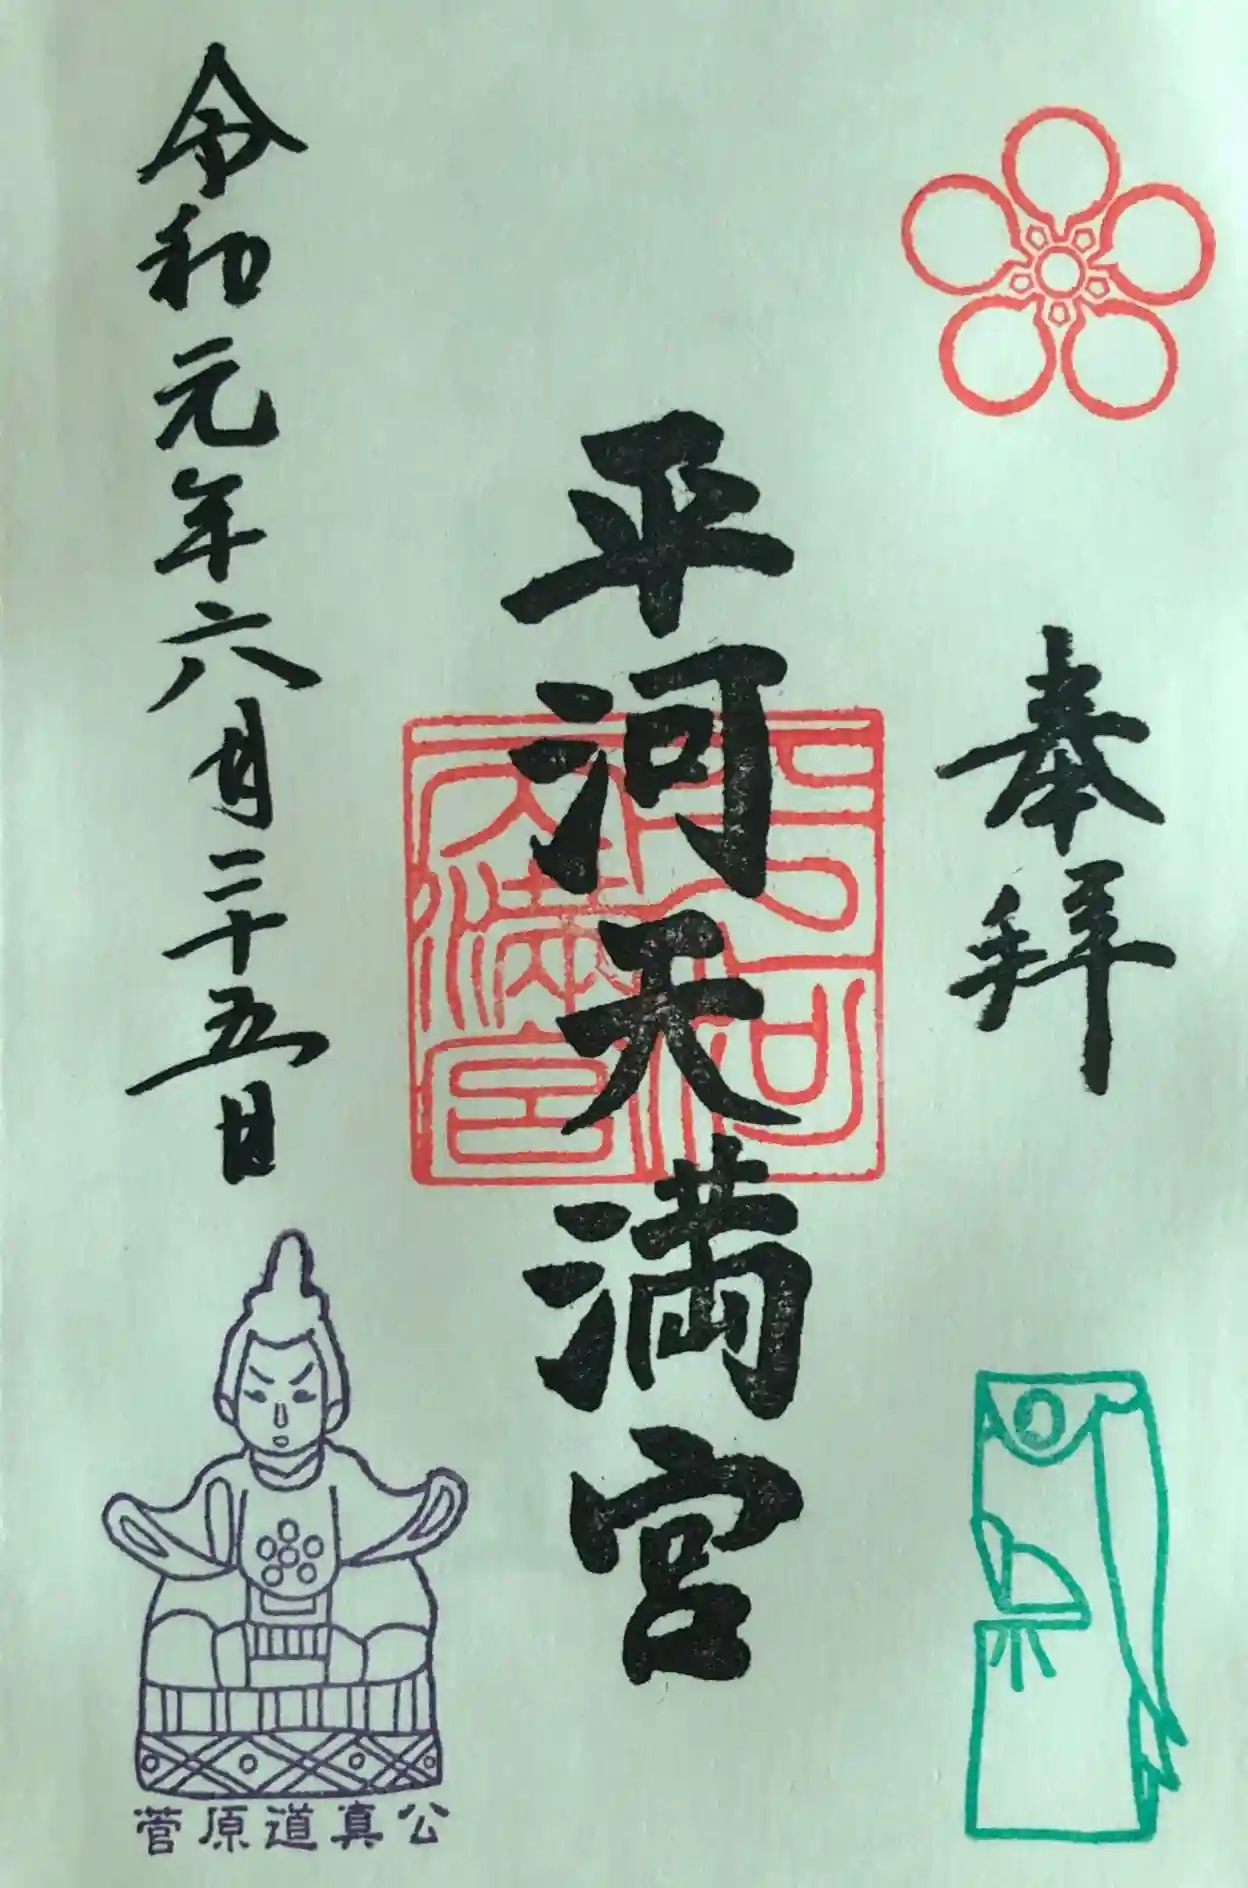 奉拝
平河天満宮
平河天満宮
令和元年六月二十五日
菅原道真公